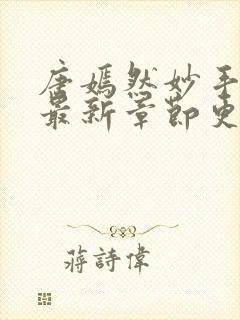 唐嫣然妙手
最新章节更
蒋詩偉